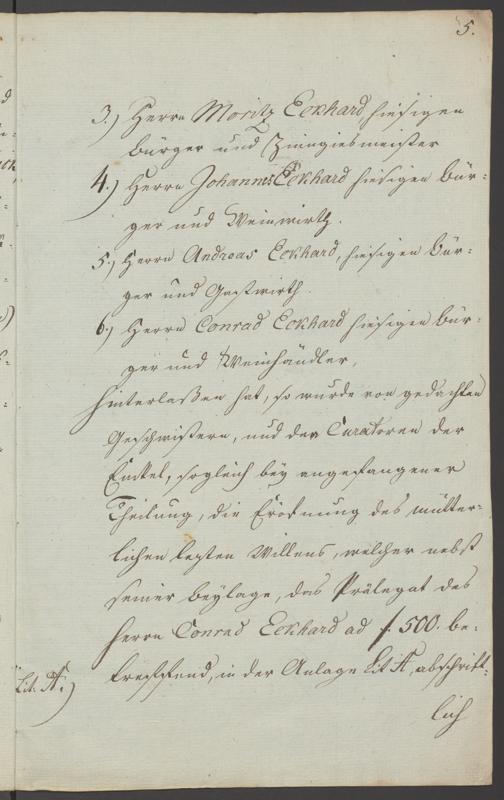 5.
3.) Herrn Moritz Eckhard, hiesigen
Bürger und Zinngiesmeister
4.) Herrn Johannes Eckhard hiesigen Bür-
ger und Weinwirth.
5.) Herrn Andreas Eckhard, hiesigen Bür-
ger und Gastwirth.
6.) Herrn Conrad Eckhard hiesigen Bür-
ger und Weinhändler,
hinterlaßen hat, so wurde von gedachten
Geschwistern, und den Curatoren der
Enckel, sogleich bey angefangener
Theilung, die Eröfnung des mütter-
lichen lezten Willens, welcher nebst
seiner Beylage, das Prälegat des
Herrn Conrad Eckhard ad f. 500. be-
treffend, in der Anlage Lit. A, abschrift-
Lit. A.)
lich